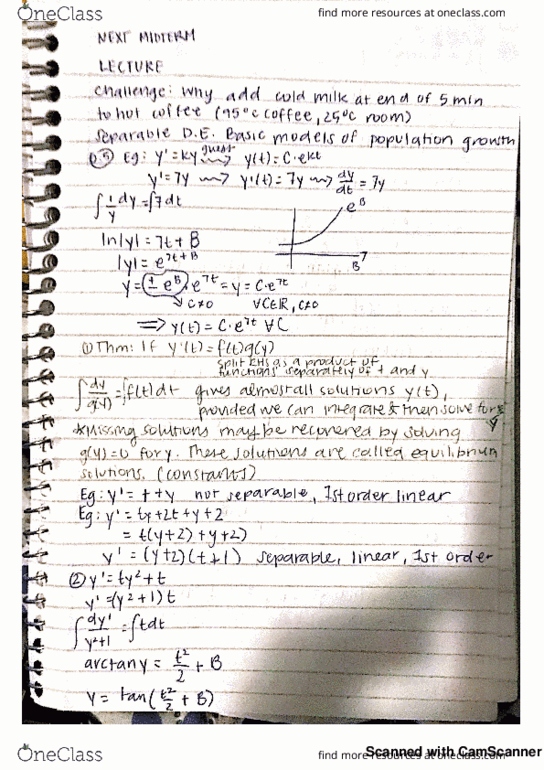 OneClass find more resources at oneclass.com
NEXT MIDTERM
LECTURE
Challenge: Why add cold milk at end of 5 min
to hot coffee (95°C coffee, 25°C room)
Separable D.E. Basic models of population growth
Eg: y' = ky guess y(t) = C·e^kt
y' = 7y ⇝ y'(t) = 7y ⇝ dy/dt = 7y
∫ 1/y dy = ∫7dt
e^B
ln|y| = 7t + B
B
|y| = e^7t+B
y = ± e^B · e^7t = y = C·e^7t
C≠0 ∀C∈ℝ, C≠0
⟹ y(t) = C·e^7t ∀C
① Thm: If y'(t) = f(t)g(y)
split RHS as a product of
functions separately of t and y
∫ dy/g(y) = ∫f(t)dt gives almost all solutions y(t),
provided we can integrate & then solve for y
*Missing solutions may be recovered by solving
g(y) = 0 for y. These solutions are called equilibrium
solutions. (constants)
Eg: y' = t + y not separable, 1st order linear
Eg: y' = ty + 2t + y + 2
= t(y+2) + y+2)
y' = (y+2)(t+1) separable, linear, 1st order
② y' = ty² + t
y' = (y²+1)t
∫ dy'/y²+1 = ∫tdt
arctany = t²/2 + B
y = tan(t²/2 + B)
OneClass find more resources at oneclass.com
Scanned with CamScanner